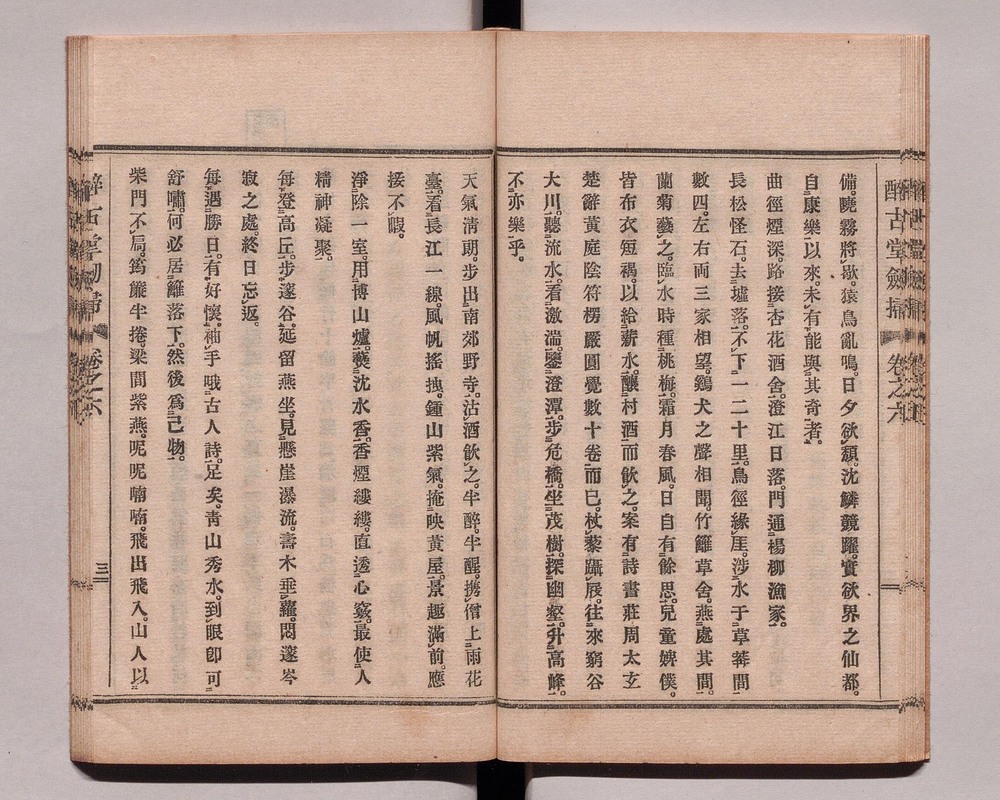 醉古堂劍掃 卷之六
備。曉霧將歇。猿鳥亂鳴。日夕欲頹。沈鱗競躍。實欲界之仙都。
自康樂以來。未有能與其奇者。
曲徑煙深。路接杏花酒舍。澄江日落。門通楊柳漁家。
長松怪石。去墟落不下一二十里。鳥徑緣厓。涉水于草莽間
數四。左右両三家相望。鷄犬之聲相聞。竹籬草舍。燕處其間。
蘭菊藝之。臨水時種桃梅。霜月春風。日自有餘思。兒童婢僕。
皆布衣短褐。以給薪水。釀村酒而飲之。案有詩書莊周太玄
楚辭黃庭陰符楞嚴圓覺數十卷而已。杖藜躡屐。往來窮谷
大川。聽流水。看激湍。鑒澄潭。步危橋。坐茂樹。探幽壑。升高峰。
不亦樂乎。
天氣淸朗。步出南郊野寺。沽酒飲之。半醉半醒。携僧上雨花
臺。看長江一線。風帆搖拽。鍾山紫氣。掩映黃屋。景趣滿前。應
接不暇。
淨除一室。用博山爐爇沈水香。香煙縷縷。直透心竅。最使人
精神凝聚。
每登高丘。步邃谷。延留燕坐。見懸崖瀑流。壽木垂蘿。悶邃岑
寂之處。終日忘返。
每遇勝日。有好懷。袖手哦古人詩。足矣。靑山秀水。到眼卽可
舒嘯。何必居籬落下。然後爲己物。
柴門不扃。筠簾半捲。梁間紫燕。呢呢喃喃。飛出飛入。山人以
醉古堂劍掃 卷之六
三